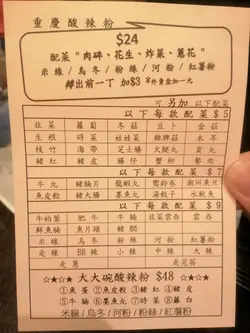 重慶酸辣粉
$24
配菜 "肉碎、花生、炸菜、蔥花"
米線 / 烏冬 / 粉絲 / 河粉 / 紅薯粉
轉出前一丁 加$3 另外賣加一元
可另加以下配菜
以下每款配菜 $5
韭菜 蘿蔔 冬菇 豆卜 金菇
生根 時菜 娃娃菜 雞肉 木耳
枝竹 海帶 芝士腸 火腿 肯丸
豬紅 豬皮 腸仔 蟹柳 豬肉
以下每款配菜 $7
牛丸 豬腩片 龍蝦丸 響鈴卷 潮州魚旦
魚皮餃 豬大腸 墨魚丸 滷汁 魷魚
以下每款配菜 $9
牛柏葉 肥牛 牛腩 韭菜雲吞 雲吞
鮮魚腩 魚片頭 豬潤
米線 烏冬 粉絲 河粉 紅薯粉
走辣 BB辣 小辣 中辣 大辣
走蔥 走芫茜
☆★☆★ 大大碗酸辣粉 $48 ☆★☆★
①魚蛋 ②魚皮餃 ③豬紅 ④豬皮
⑤牛腩 ⑥墨魚丸 ⑦時菜 ⑧蘿白
米線/烏冬/河粉/粉絲/紅薯粉